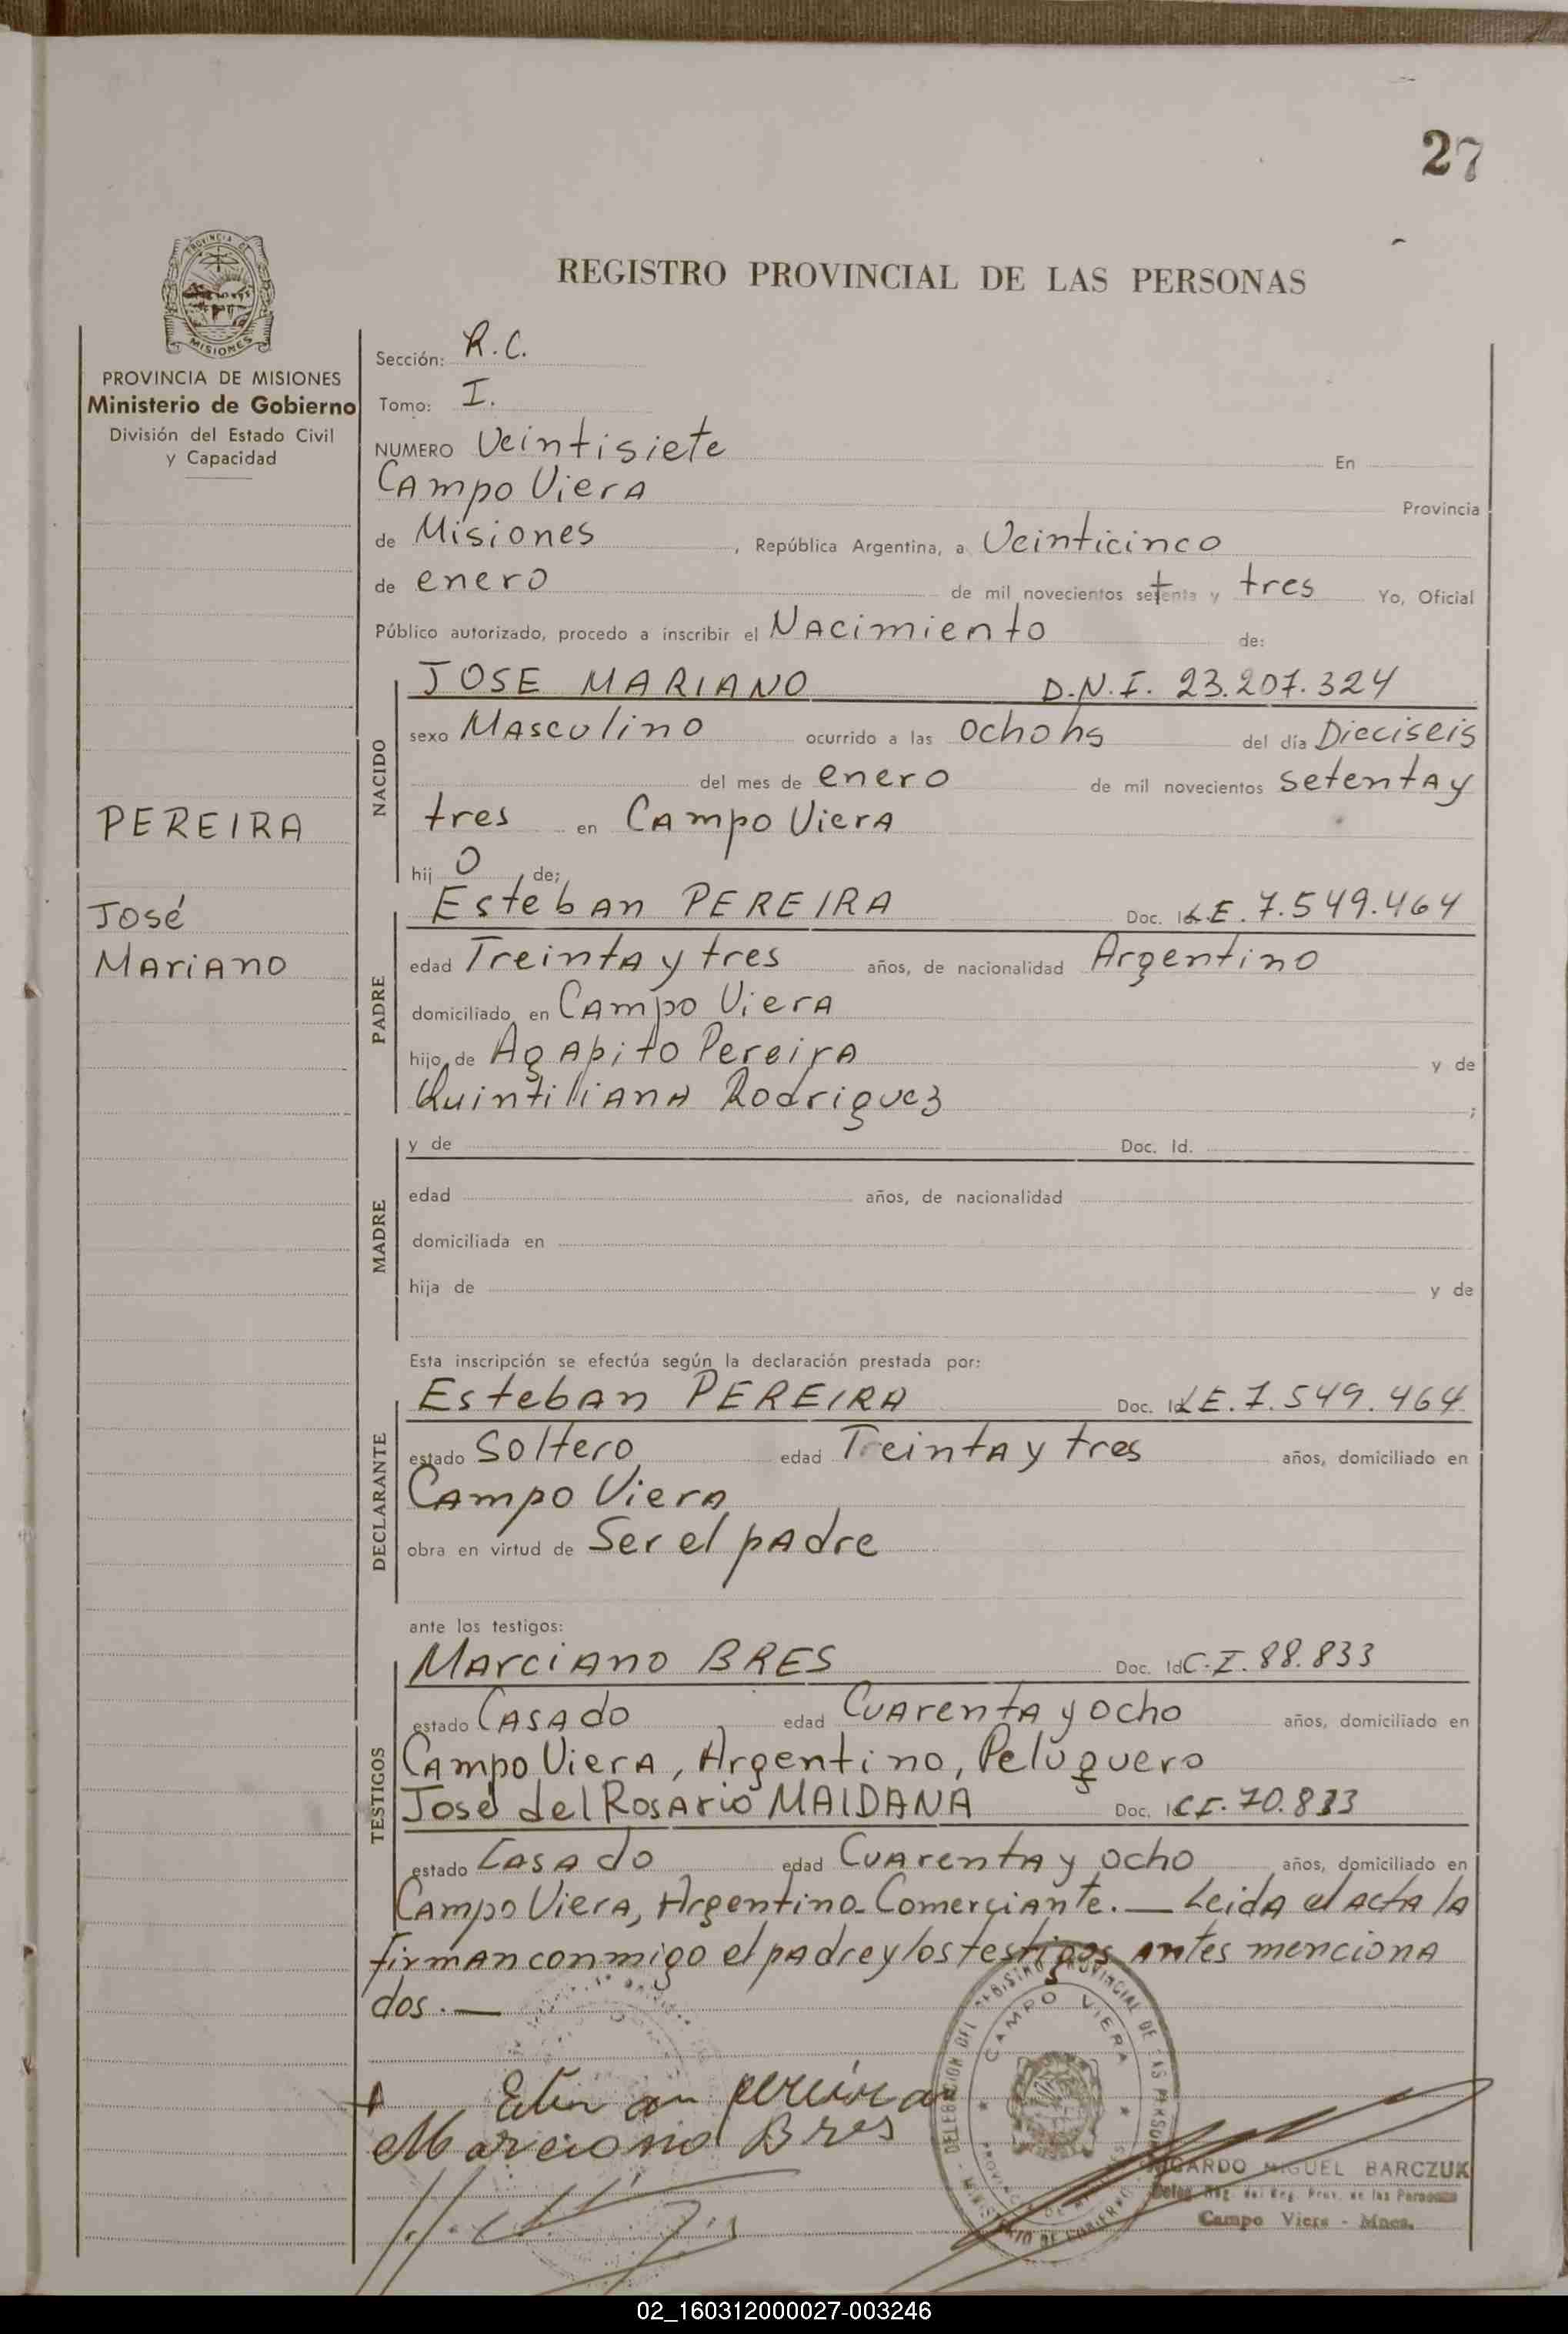 27
PROVINCIA DE MISIONES
REGISTRO PROVINCIAL DE LAS PERSONAS
PROVINCIA DE MISIONES
Ministerio de Gobierno
División del Estado Civil
y Capacidad
PEREIRA
José
Mariano
Sección: R.C.
Tomo: I.
NUMERO Veintisiete En
Campo Viera Provincia
de Misiones, República Argentina, a Veinticinco
de enero de mil novecientos setenta y tres Yo, Oficial
Público autorizado, procedo a inscribir el Nacimiento de:
NACIDO
JOSE MARIANO D.N.I. 23.207.324
sexo Masculino ocurrido a las ocho hs del día Dieciseis
del mes de enero de mil novecientos setenta y
tres en Campo Viera
hijo de:
PADRE
Esteban PEREIRA Doc. Id. L.E. 7.549.464
edad Treinta y tres años, de nacionalidad Argentino
domiciliado en Campo Viera
hijo de Agapito Pereira y de
Quintiliana Rodriguez ;
MADRE
y de Doc. Id.
edad años, de nacionalidad
domiciliada en
hija de y de
Esta inscripción se efectúa según la declaración prestada por:
DECLARANTE
Esteban PEREIRA Doc. Id. L.E. 7.549.464
estado Soltero edad Treinta y tres años, domiciliado en
Campo Viera
obra en virtud de Ser el padre
ante los testigos:
TESTIGOS
Marciano BRES Doc. Id. C.I. 88.833
estado Casado edad Cuarenta y ocho años, domiciliado en
Campo Viera, Argentino, Peluquero
José del Rosario MAIDANA Doc. Id. C.I. 70.833
estado Casado edad Cuarenta y ocho años, domiciliado en
Campo Viera, Argentino - Comerciante. — Leida el acta la
firman conmigo el padre y los testigos antes menciona
dos. —
DELEGACION DEL REGISTRO PROVINCIAL DE LAS PERSONAS
CAMPO VIERA
PROVINCIA DE MISIONES
MINISTERIO DE GOBIERNO
Esteban pereira
Marciano Bres
RICARDO MIGUEL BARCZUK
Deleg. Reg. del Reg. Prov. de las Personas
Campo Viera - Mnes.
02_160312000027-003246